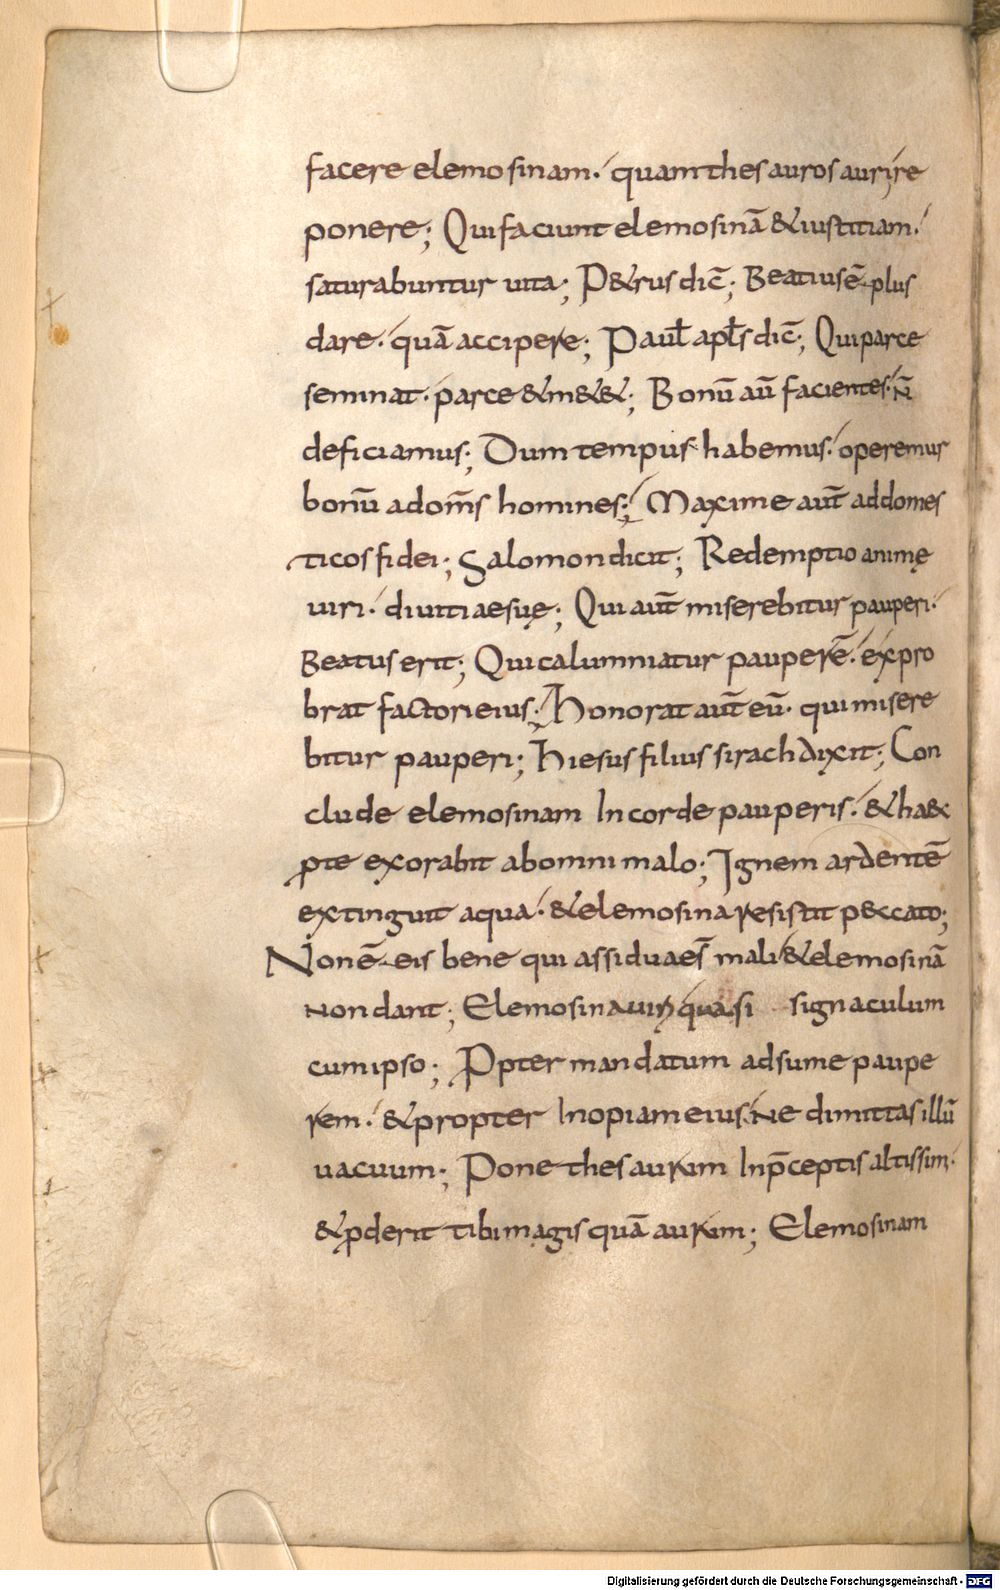 facere elemosinam· quam thesauros auri re
ponere; Qui faciunt elemosinā & iustitiam·
saturabuntur uita; P&rus dic̄; Beatius ē plus
dare· quā accipere; Paul̄ apl̄s dic̄; Qui parce
seminat· parce & m&&; Bonū aū facientes· n̄
deficiamus; Dum tempus habemus· operemus
bonū ad om̄s homines; Maxime aut̄ ad domes
ticos fidei; Salomon dicit; Redemptio animę
uiri· diuitiae suę; Qui aut̄ miserebitur pauperi·
Beatus erit; Qui calumniatur pauperē· expro
brat factori eius; Honorat aut̄ eū· qui misere
bitur pauperi; Hiesus filius sirach dixit; Con
clude elemosinam In corde pauperis· & ha&
ꝓ te exorabit ab omni malo; Ignem ardentē
extinguit aqua· & elemosina resistit peccato;
Non ē eis bene qui assidua es̄ mali & elemosinā
non dant; Elemosina uiri quasi signaculum
cum ipso; Ꝓpter mandatum adsume paupe
rem· & propter Inopiam eius· ne dimittas illū
uacuum; Pone thesaurum In p̄ceptis altissimi·
& ꝓderit tibi magis quā aurum; Elemosinam
Digitalisierung gefördert durch die Deutsche Forschungsgemeinschaft - DFG